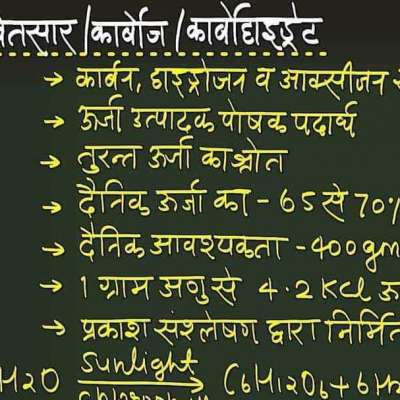 वेतसार/कार्बोज/कार्बोहाइड्रेट
→ कार्बन, हाइड्रोजन व आक्सीजन
→ ऊर्जा उत्पादक पोषक पदार्थ
→ तुरन्त ऊर्जा का श्रोत
→ दैनिक ऊर्जा का - 65 से 70%
→ दैनिक आवश्यकता - 400gm
→ 1 ग्राम अणु से 4.2 KCl ऊ
→ प्रकाश संश्लेषण द्वारा निर्मित
Sunlight
H2O → C6H12O6 + 6H2